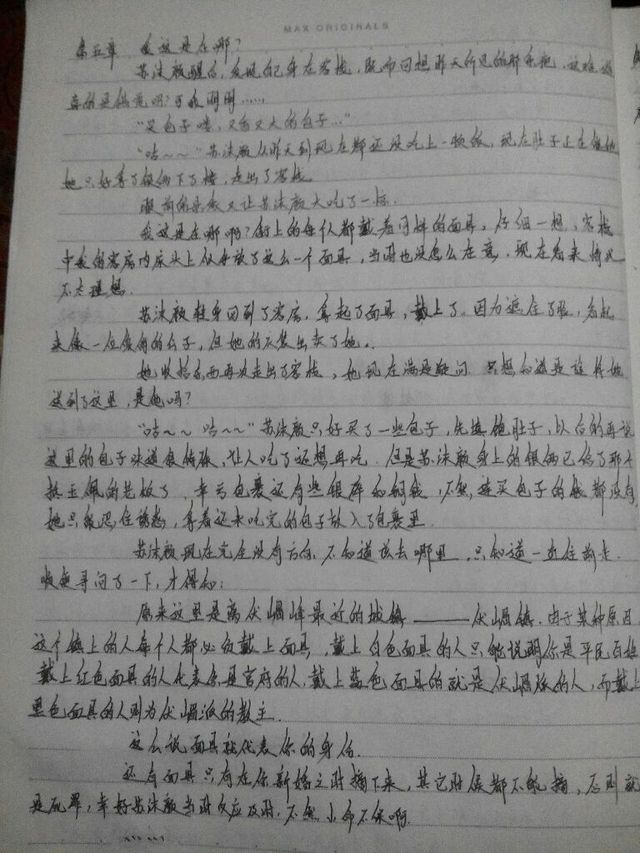 MAX ORIGINALS
第五章 我这是在哪?
苏沫颜醒来,发现自己身在客栈,既而回想昨天所遇的那
真的是错觉吗?可我明明……
"买包子喽,又白又大的包子…"
"咕~~"苏沫颜从昨天到现在都还没吃上一顿饭,现在肚子正在
她只好拿了银两下了楼,走出了客栈
眼前的景象又让苏沫颜大吃了一惊.
我这是在哪啊?街上的每人都戴着同样的面具,仔细一想,客栈
中我的客房内床头上似乎放了这么一个面具,当时也没怎么在意,现在看来情况
不太理想.
苏沫颜转身回到了客房,拿起了面具,戴上了.因为遮住了脸,看起
来像一位俊俏的公子,但她的衣装出卖了她。
她收拾东西再次走出了客栈,她现在满是疑问 只想知道是谁将她
送到了这里,是他吗?
"咕~~ 咕~~"苏沫颜只好买了一些包子,先填饱肚子,以后的再说
这里的包子味道很特殊,让人吃了还想再吃.但是苏沫颜身上的银两已给了那个
挑玉佩的老板了,幸亏包裹还有些银库的铜钱,不然,连买包子的钱都没有
她只能忍住诱惑,拿着还未吃完的包子放入了包裹里.
苏沫颜现在完全没有方向,不知道该去哪里,只知道一直往前走.
顺便寻问了一下,才得知:
原来这里是离伏崛峰最近的城镇———伏崛镇.由于某种原因
这个镇上的人每个人都必须戴上面具,戴上白色面具的人只能说明你是平民百姓
戴上红色面具的人代表你是官府的人,戴上蓝色面具的就是伏崛派的人,而戴上
黑色面具的人则为伏崛派的教主.
这么说面具就代表你的身份.
还有面具只有在你新婚之时摘下来,其它时候都不能摘,否则就
是死罪,幸好苏沫颜当时反应及时.不然小命不保啊.
……